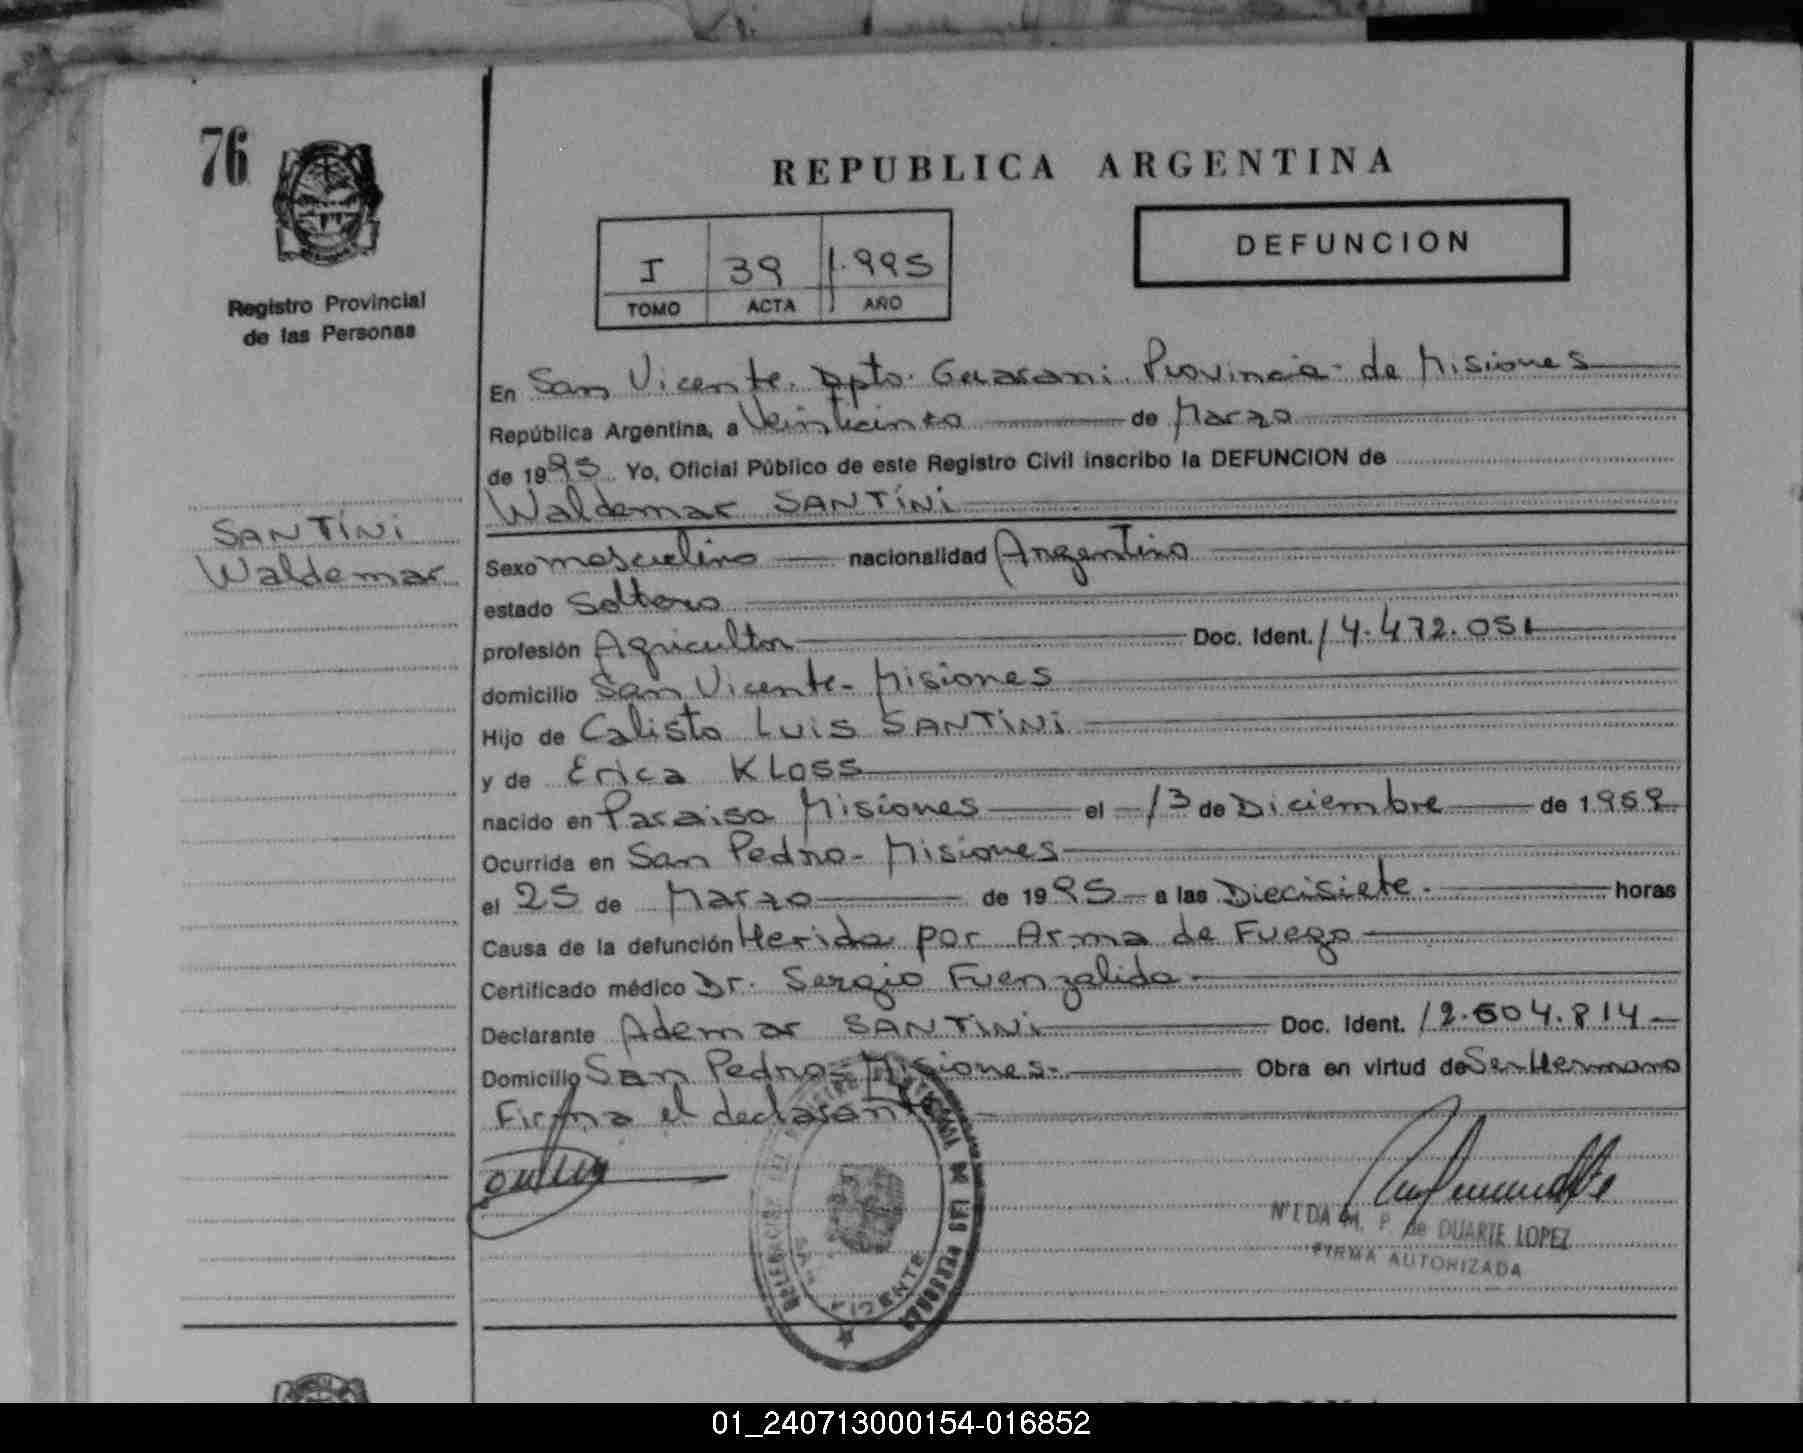 76
REPUBLICA ARGENTINA
DEFUNCION
I 39 1.995
TOMO ACTA AÑO
Registro Provincial
de las Personas
En San Vicente. Dpto. Guarani. Provincia de Misiones
República Argentina, a Veinticinco de Marzo
de 1995 Yo, Oficial Público de este Registro Civil inscribo la DEFUNCION de
Waldemar SANTINI
SANTINI
Waldemar
Sexo masculino nacionalidad Argentino
estado Soltero
profesión Agricultor Doc. Ident. 14.472.051
domicilio San Vicente - Misiones
Hijo de Calisto Luis SANTINI
y de Erica KLOSS
nacido en Paraiso Misiones el 13 de Diciembre de 1.959
Ocurrida en San Pedro - Misiones
el 25 de Marzo de 1995 a las Diecisiete. horas
Causa de la defunción Herida por Arma de Fuego
Certificado médico Dr. Sergio Fuenzalida
Declarante Ademar SANTINI Doc. Ident. 12.604.814
Domicilio San Pedro - Misiones - Obra en virtud de Ser Hermano
Firma el declarante
DE LAS PERSONAS
SAN VICENTE
M. P. de DUARTE LOPEZ
FIRMA AUTORIZADA
01_240713000154-016852